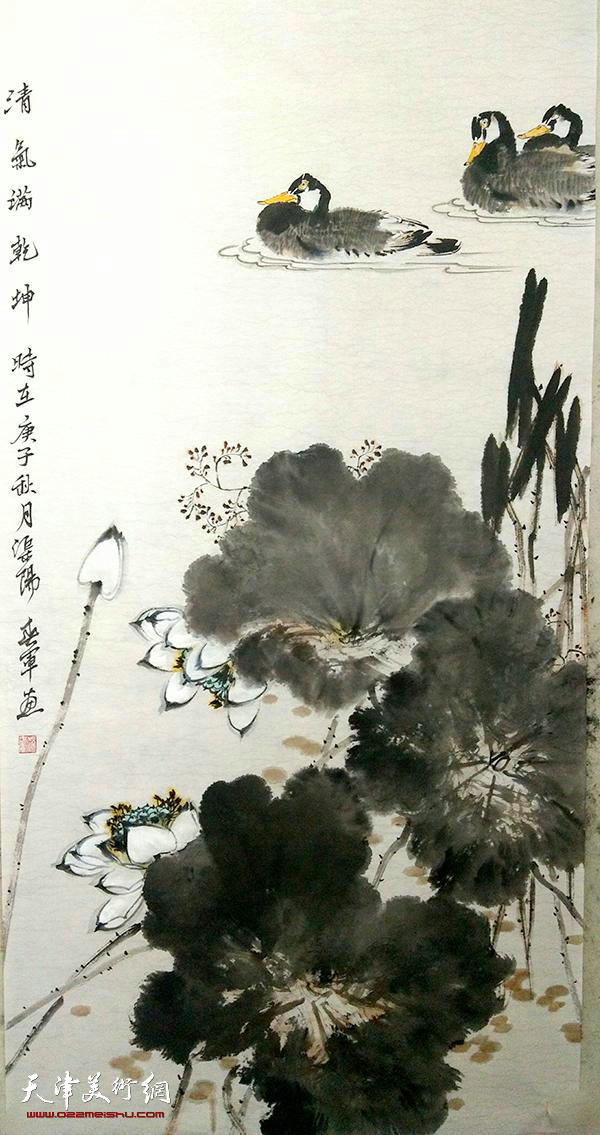 清氣滿乾坤 時在庚子秋月渠陽 春軍画
天津美術網
www.022meishu.com